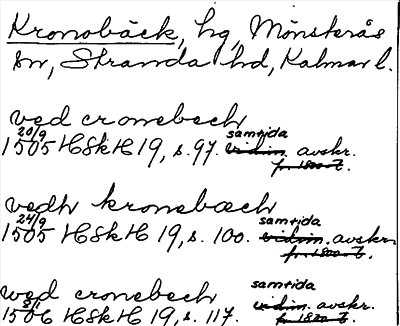 Kronobäck, hg, Mönsterås
sn, Stranda hd, Kalmar l.
ved cronebech
20/9 samtida
1505 HSkH 19, s. 97. vidim. avskr.
fr. 1800-t.
vedh kronebæch
24/9 samtida
1505 HSkH 19, s. 100. vidim. avskr.
fr. 1800-t.
ved cronebech samtida
8/1
1506 HSkH 19, s. 117. vidim. avskr.
fr. 1800-t.